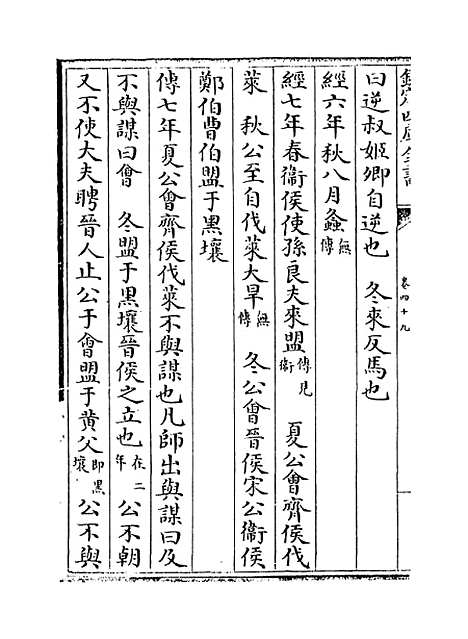 欽定四庫全書 卷四十九
曰逆叔姬卿自逆也 冬來反馬也
經六年秋八月螽無傳
經七年春衞侯使孫良夫來盟傳見衞 夏公會齊侯伐
萊 秋公至自伐萊大旱無傳 冬公會晉侯宋公衞侯
鄭伯曹伯盟于黑壤
傳七年夏公會齊侯伐萊不與謀也凡師出與謀曰及
不與謀曰會 冬盟于黑壤晉侯之立也在二年 公不朝
又不使大夫聘晉人止公于會盟于黃父即黑壤 公不與